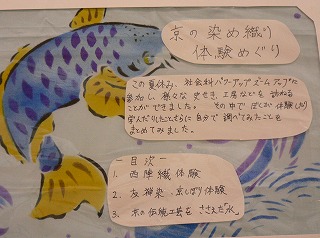 京の染め織り
体験めぐり
この夏休み、社会科パワーアップズームアップに
参加し、様々な 史せき、工房などを 訪ねる
ことが できました。 その中で ぼくが 体験したり
学んだりしたことをもとに自分で 調べてみたことを
まとめてみました。
－目次－
1. 西陣織体験
2. 友禅染・京しぼり体験
3. 京の伝統工芸を ささえた「水」